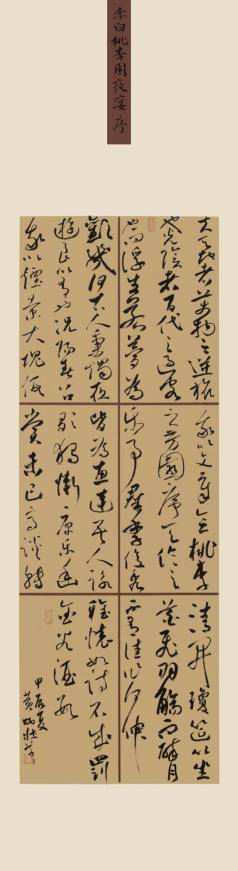 李白桃李園夜宴序
夫天地者萬物之逆旅
也光陰者百代之過客
而浮生若夢為
歡幾何古人秉燭夜
遊良以有也況陽春召
我以煙景大塊假
我以文章會桃李
之芳園序天倫之
樂事群季俊秀
皆為惠連吾人詠
歌獨慚康樂幽
賞未已高談轉
清開瓊筵以坐
花飛羽觴而醉月
不有佳作何伸
雅懷如詩不成罰
金谷酒數
甲辰夏
黃